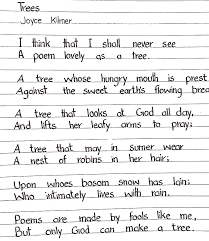 Trees
Joyce Kilmer
I think that I shall never see
A poem lovely as a tree.
A tree whose hungry mouth is prest
Against the sweet earth's flowing brea
A tree that looks at God all day,
And lifts her leafy arms to pray;
A tree that may in sumer wear
A nest of robins in her hair;
Upon whoes bosom snow has lain;
Who intimately lives with rain.
Poems are made by fools like me,
But only God can make a tree.